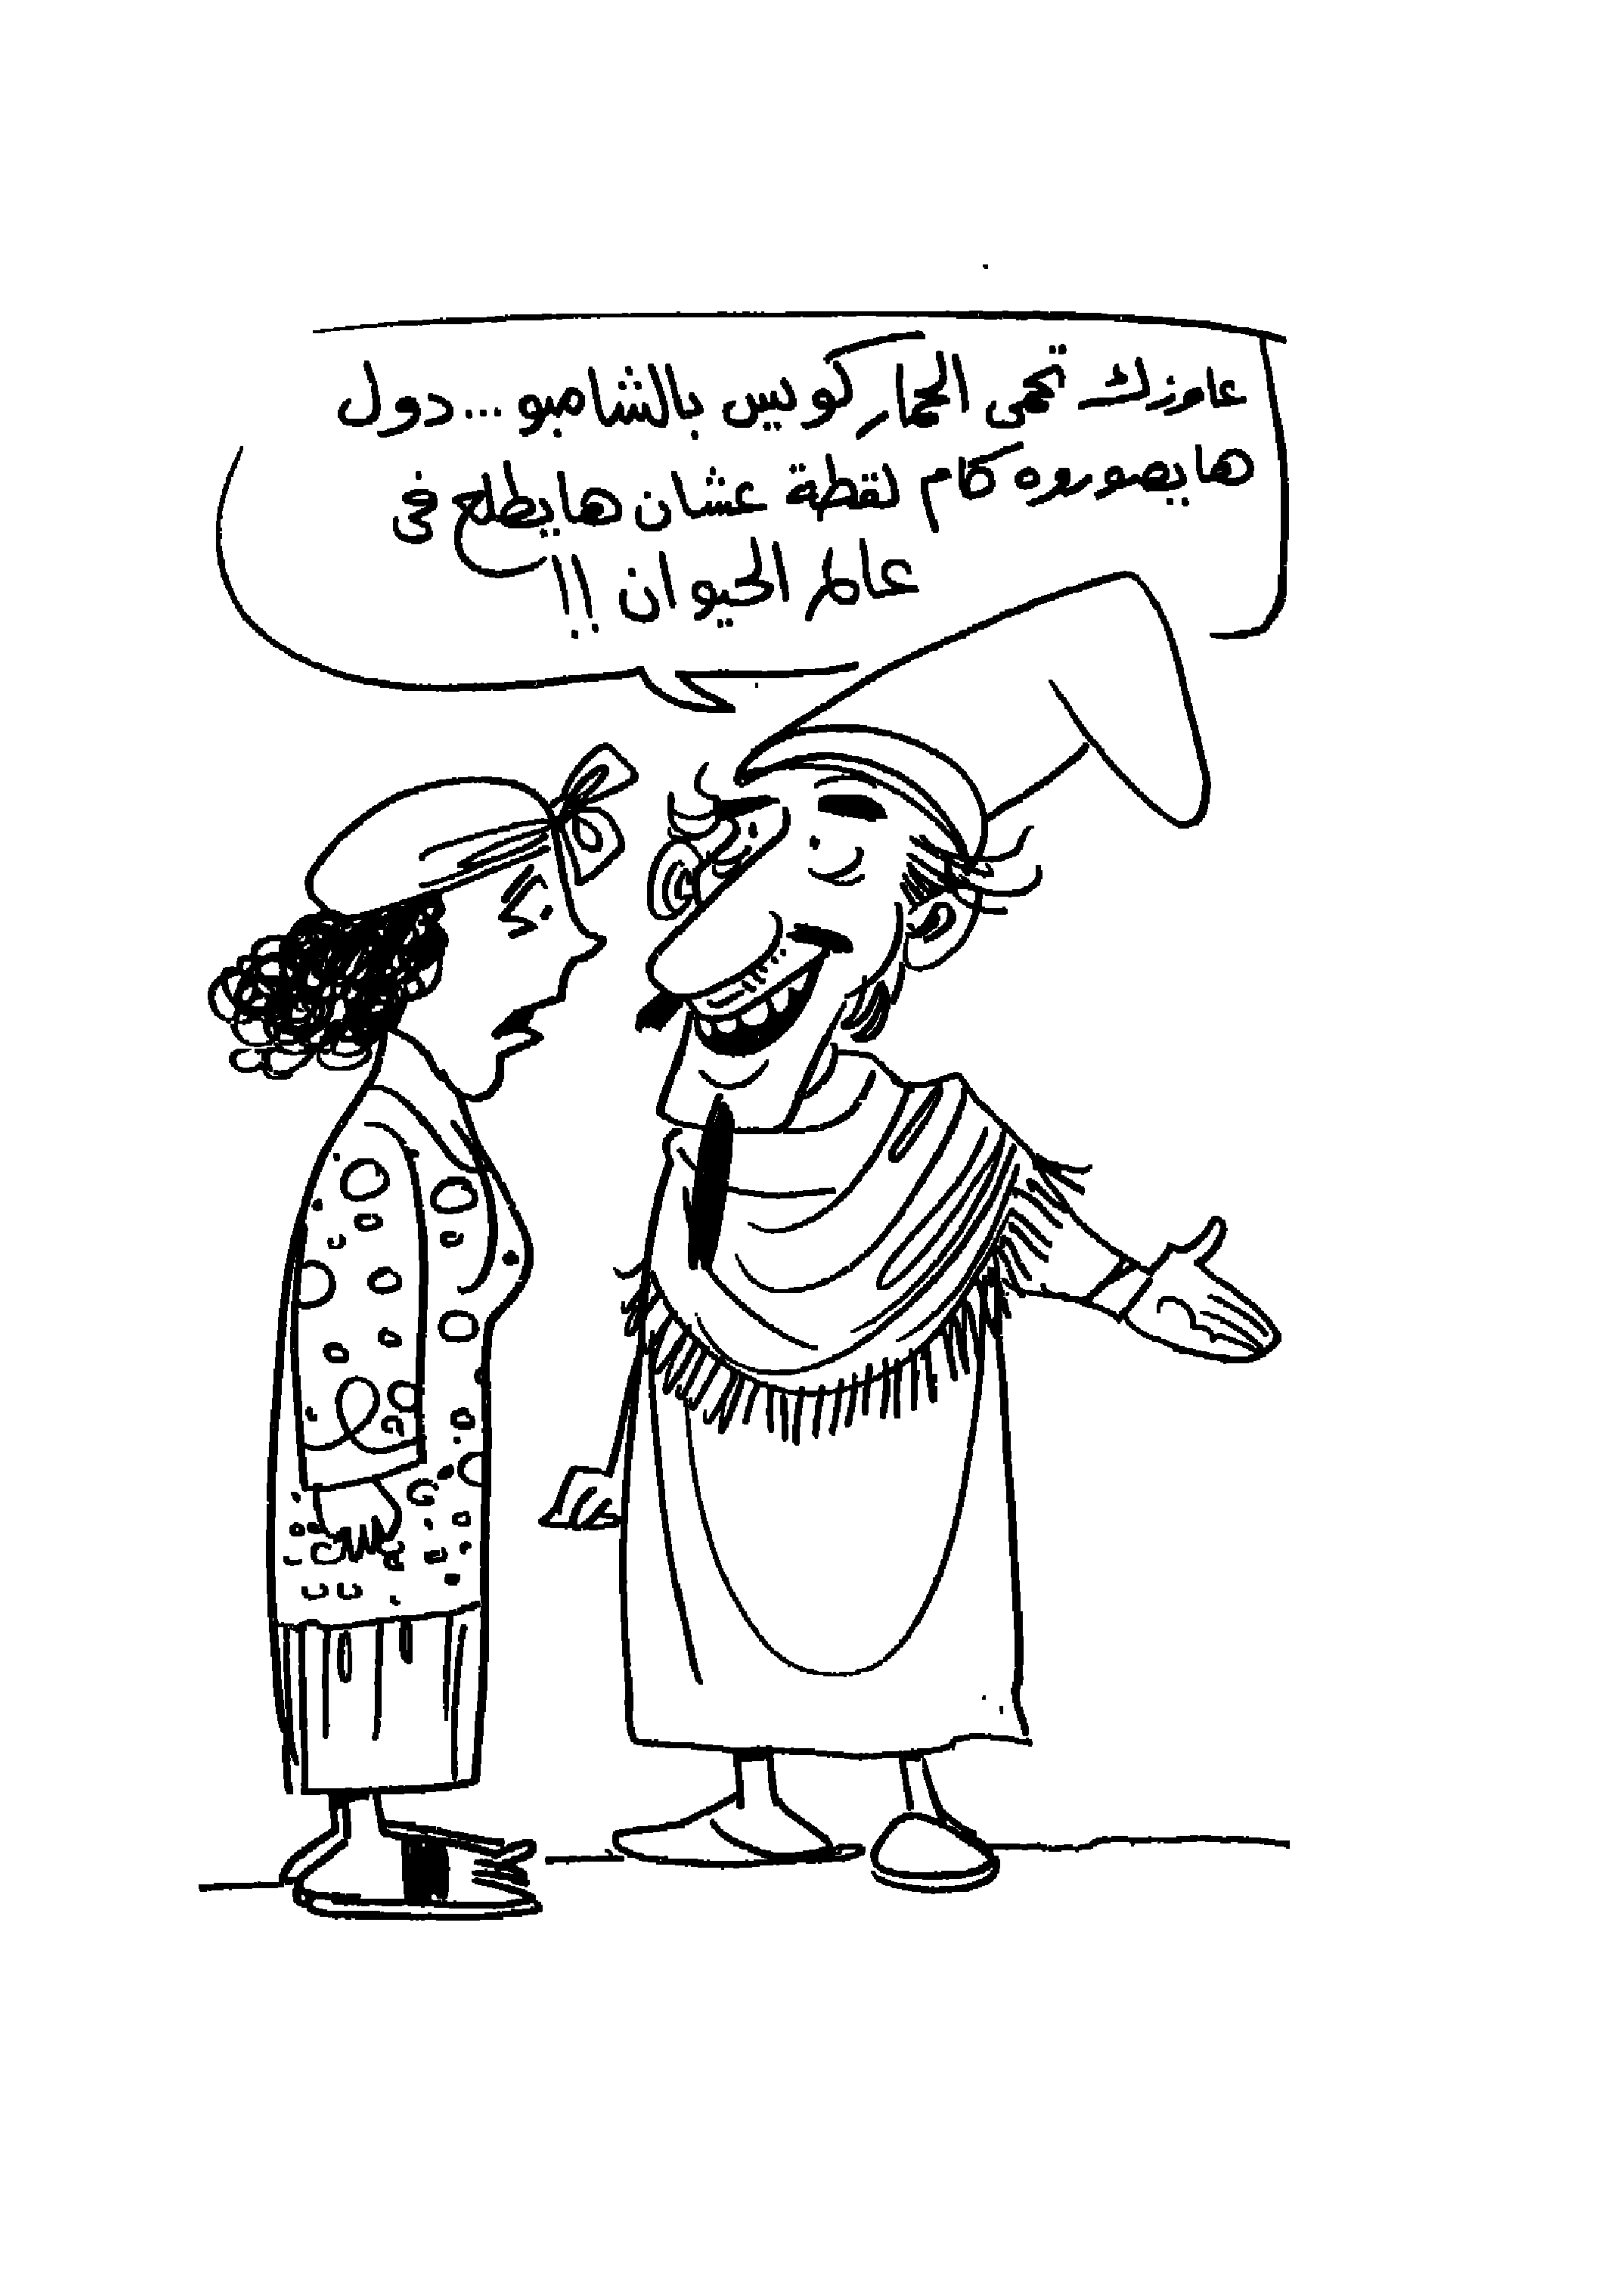 عاوزك تحمى الحمار كويس بالشامبو... دول
هايصوروه كام لقطة عشان هايطلع فى
عالم الحيوان !!